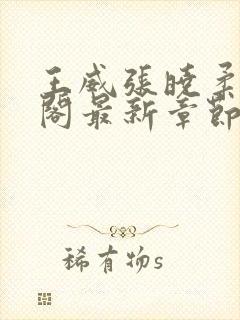 王威張曉柔
閣最新章節
稀有物s